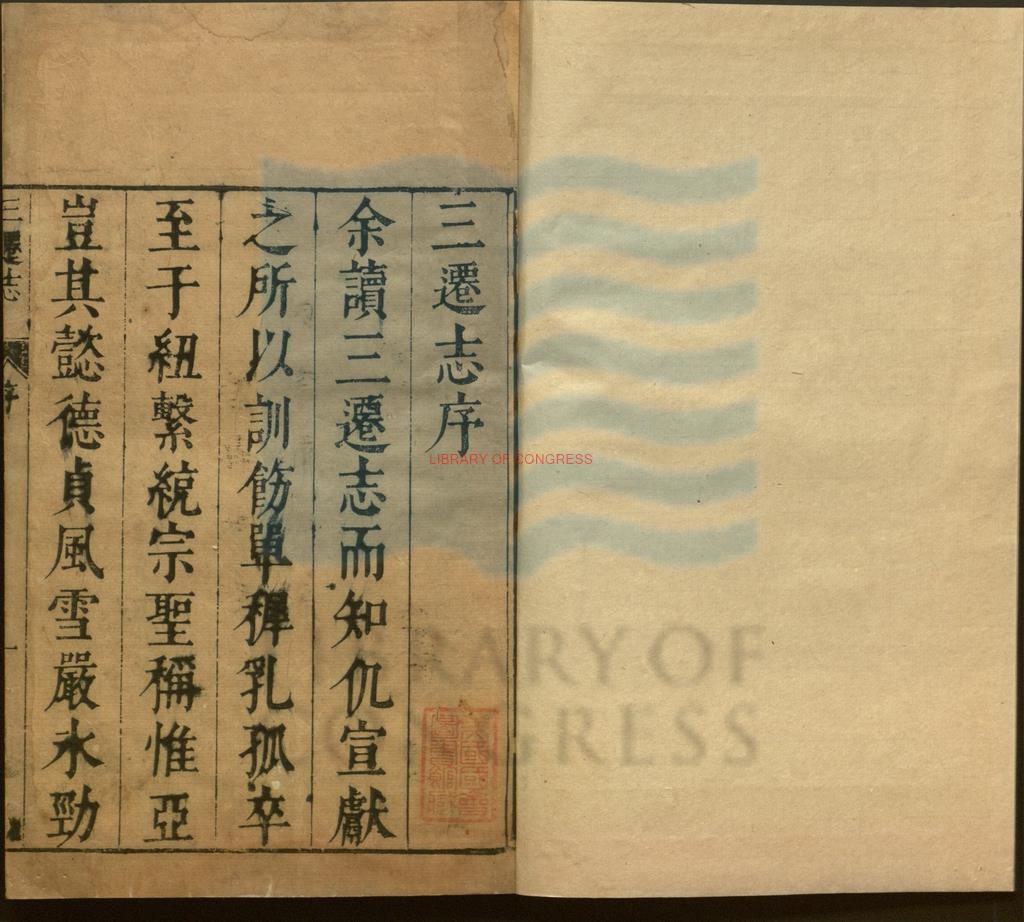 三遷志序
余讀三遷志而知仉宣獻
之所以訓飭單穉乳孤卒
至于紐繫統宗聖稱惟亞
豈其懿德貞風雪嚴氷勁
三遷志
序
一
LIBRARY OF CONGRESS
LIBRARY OF
CONGRESS